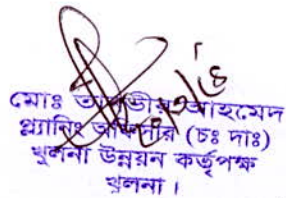 মোঃ আহমেদ
প্ল্যানিং অফিসার (চঃ দাঃ)
খুলনা উন্নয়ন কর্তৃপক্ষ
খুলনা।